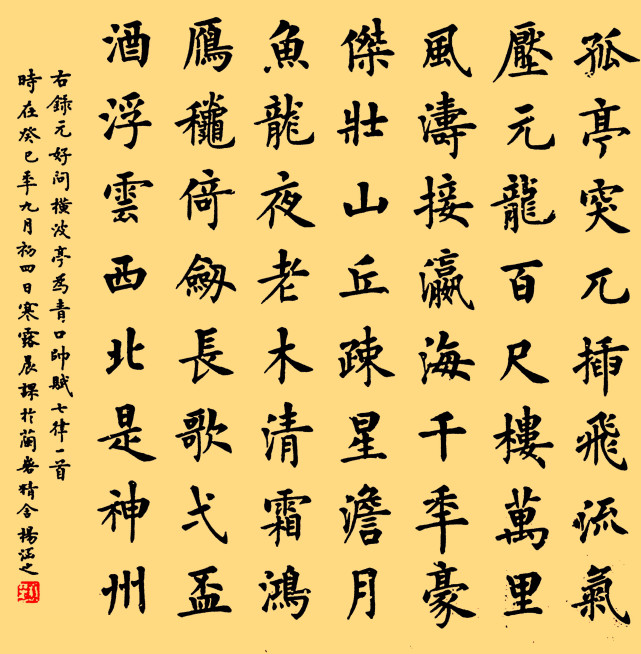 孤亭突兀插飛流氣
壓元龍百尺樓萬里
風濤接瀛海千秊豪
傑壯山丘疎星澹月
魚龍夜老木清霜鴻
鴈龝倚劒長歌弌盃
酒浮雲西北是神州
右錄元好问橫波亭為青口帥賦七律一首
時在癸巳年九月初四日寒露晨課於蘭岩精舍楊涵之